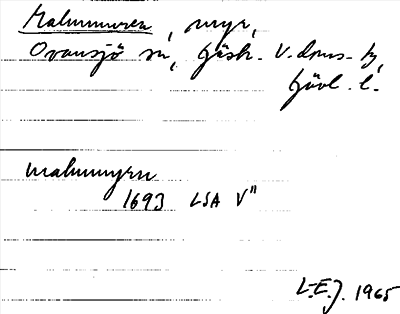 Malmmuren, myr,
Ovansjö sn, Gästr. V. doms. hy,
Gävl. l.
Malmmyrn
1693 LSA V"
L.E.J. 1965